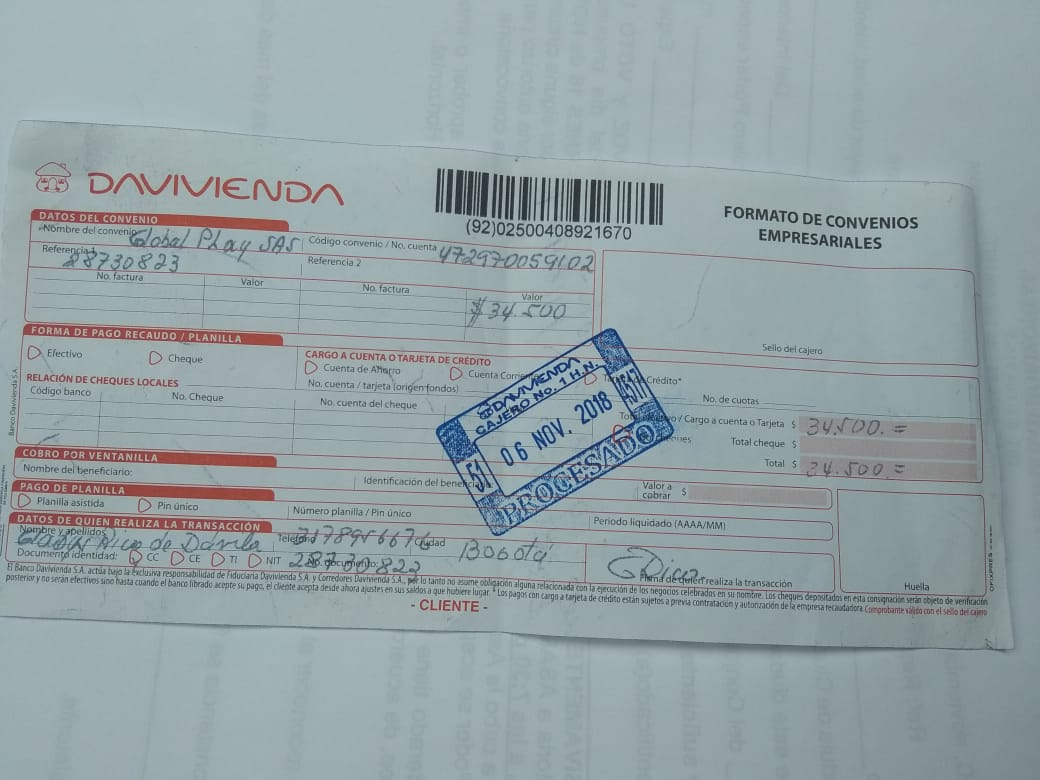 DAVIVIENDA
(92)02500408921670
FORMATO DE CONVENIOS
EMPRESARIALES
DATOS DEL CONVENIO
Nombre del convenio Global Play SAS Código convenio / No. cuenta 472970059102
Referencia 1 28730823 Referencia 2
No. factura Valor No. factura Valor
$34.500
Sello del cajero
FORMA DE PAGO RECAUDO / PLANILLA
Efectivo Cheque
CARGO A CUENTA O TARJETA DE CRÉDITO
Cuenta de Ahorro Cuenta Corriente Crédito*
No. cuenta / tarjeta (origen fondos) No. de cuotas
RELACIÓN DE CHEQUES LOCALES
Código banco No. Cheque No. cuenta del cheque
/ Cargo a cuenta o Tarjeta $ 34.500.=
Total cheque $
Total $ 34.500=
DAVIVIENDA
CAJERO No. 1 H.N.
51 06 NOV. 2018
PROCESADO
COBRO POR VENTANILLA
Nombre del beneficiario: Identificación del
Valor a
cobrar $
PAGO DE PLANILLA
Planilla asistida Pin único Número planilla / Pin único Periodo liquidado (AAAA/MM)
DATOS DE QUIEN REALIZA LA TRANSACCIÓN
Nombre y apellidos de Dávila Teléfono Ciudad Bogotá
Documento identidad: CC CE TI NIT No. documento: 28730823
Firma de quien realiza la transacción
Huella
El Banco Davivienda S.A. actúa bajo la exclusiva responsabilidad de Fiduciaria Davivienda S.A. y Corredores Davivienda S.A., por lo tanto no asume obligación alguna relacionada con la ejecución de los negocios celebrados en su nombre. Los cheques depositados en esta consignación serán objeto de verificación
posterior y no serán efectivos sino hasta cuando el banco librado acepte su pago, el cliente acepta desde ahora ajustes en sus saldos a que hubiere lugar. * Los pagos con cargo a tarjeta de crédito están sujetos a previa contratación y autorización de la empresa recaudadora Comprobante válido con el sello del cajero
- CLIENTE -
Banco Davivienda S.A.